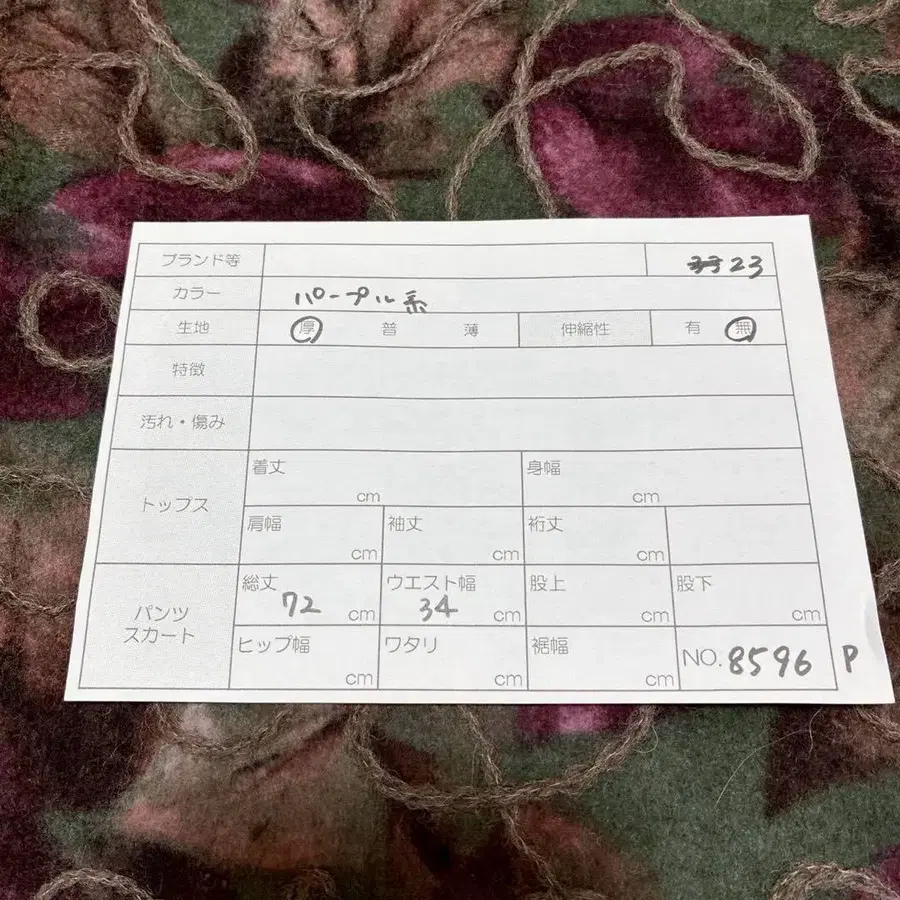 ブランド等 23
カラー パープル系
生地 厚 普 薄 伸縮性 有 無
特徴
汚れ・傷み
トップス 着丈 cm 身幅 cm
肩幅 cm 袖丈 cm 裄丈 cm
パンツ スカート 総丈 72 cm ウエスト幅 34 cm 股上 cm 股下 cm
ヒップ幅 cm ワタリ cm 裾幅 cm NO. 8596 P